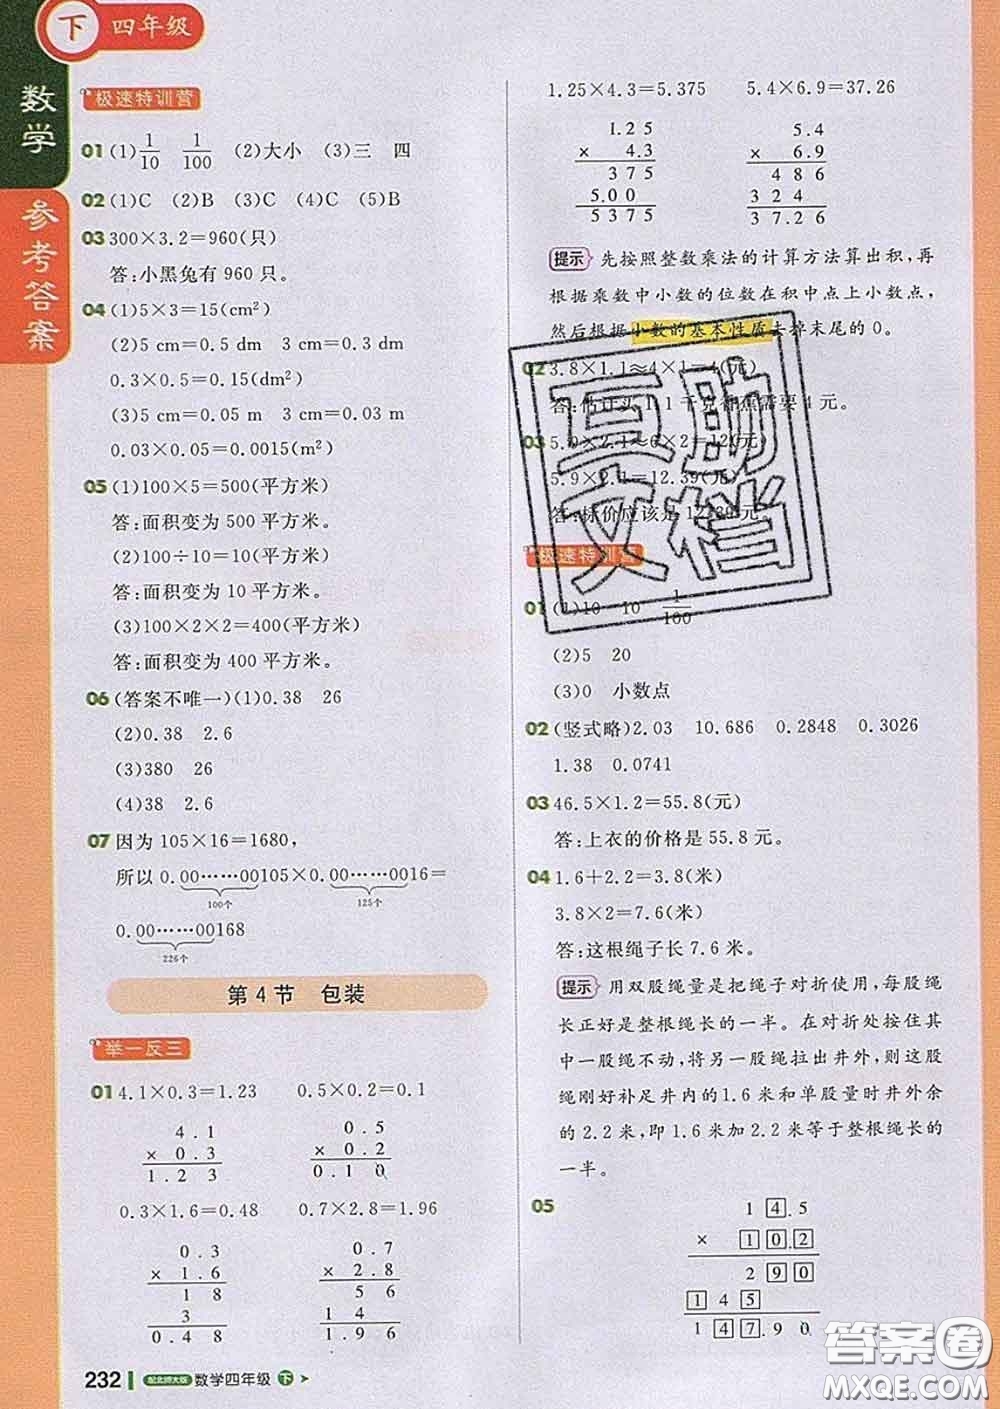 下 四年级
数学
参考答案
极速特训营
01 (1) 1/10 1/100 (2)大小 (3)三 四
02 (1)C (2)B (3)C (4)C (5)B
03 300×3.2=960(只)
答:小黑兔有 960 只。
04 (1)5×3=15(cm²)
(2)5 cm=0.5 dm 3 cm=0.3 dm
0.3×0.5=0.15(dm²)
(3)5 cm=0.05 m 3 cm=0.03 m
0.03×0.05=0.0015(m²)
05 (1)100×5=500(平方米)
答:面积变为 500 平方米。
(2)100÷10=10(平方米)
答:面积变为 10 平方米。
(3)100×2×2=400(平方米)
答:面积变为 400 平方米。
06 (答案不唯一)(1)0.38 26
(2)0.38 2.6
(3)380 26
(4)38 2.6
07 因为 105×16=1680,
所以 0.00……00105×0.00……0016=
100个 125个
0.00……00168
226个
第 4 节 包装
举一反三
01 4.1×0.3=1.23 0.5×0.2=0.1
4.1 0.5
× 0.3 × 0.2
1.23 0.10
0.3×1.6=0.48 0.7×2.8=1.96
0.3 0.7
× 1.6 × 2.8
18 56
3 14
0.48 1.96
232 配北师大版 数学四年级 下
1.25×4.3=5.375 5.4×6.9=37.26
1.25 5.4
× 4.3 × 6.9
375 486
5.00 324
5375 37.26
提示 先按照整数乘法的计算方法算出积,再
根据乘数中小数的位数在积中点上小数点,
然后根据小数的基本性质去掉末尾的 0。
02 3.8×1.1≈4×1=4(元)
答:估计买 1.1 千克得需要 4 元。
03 5.9×2.1≈6×2=12(元)
5.9×2.1=12.39(元)
答:标价应该是 12.39 元。
极速特训营
01 (1)10 10 1/100
(2)5 20
(3)0 小数点
02 (竖式略)2.03 10.686 0.2848 0.3026
1.38 0.0741
03 46.5×1.2=55.8(元)
答:上衣的价格是 55.8 元。
04 1.6+2.2=3.8(米)
3.8×2=7.6(米)
答:这根绳子长 7.6 米。
提示 用双股绳量是把绳子对折使用,每股绳
长正好是整根绳长的一半。在对折处按住其
中一股绳不动,将另一股绳拉出井外,这股
绳刚好补足井内的1.6 米和单股量时井外余
的 2.2 米,即 1.6 米加 2.2 米等于整根绳长的
一半。
05 14.5
× 10.2
290
145
147.90
互助文档
答案圈
MXQE.COM